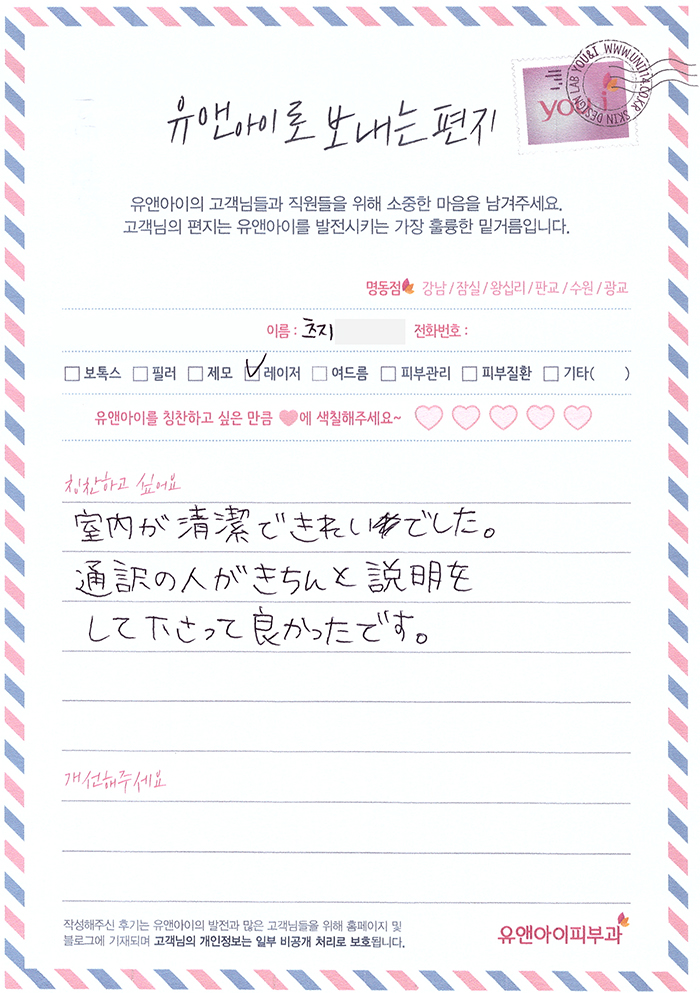 유앤아이로 보내는 편지
you i
SKIN DESIGN LAB YOU&I WWW.UNI114.CO.KR
유앤아이의 고객님들과 직원들을 위해 소중한 마음을 남겨주세요.
고객님의 편지는 유앤아이를 발전시키는 가장 훌륭한 밑거름입니다.
명동점 강남 / 잠실 / 왕십리 / 판교 / 수원 / 광교
이름 : 초지 전화번호 :
보톡스 필러 제모 레이저 여드름 피부관리 피부질환 기타( )
유앤아이를 칭찬하고 싶은 만큼 에 색칠해주세요~
칭찬하고 싶어요
室内が清潔できれいでした。
通訳の人がきちんと説明を
して下さって良かったです。
개선해주세요
작성해주신 후기는 유앤아이의 발전과 많은 고객님들을 위해 홈페이지 및
블로그에 기재되며 고객님의 개인정보는 일부 비공개 처리로 보호됩니다.
유앤아이피부과